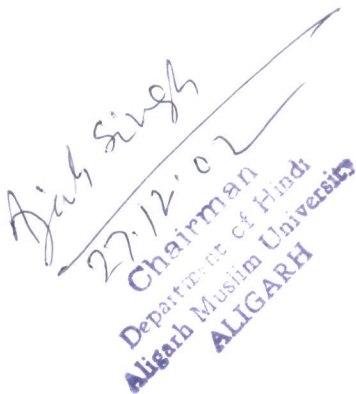 Ajab Singh
27.12.02
Chairman
Department of Hindi
Aligarh Muslim University
ALIGARH